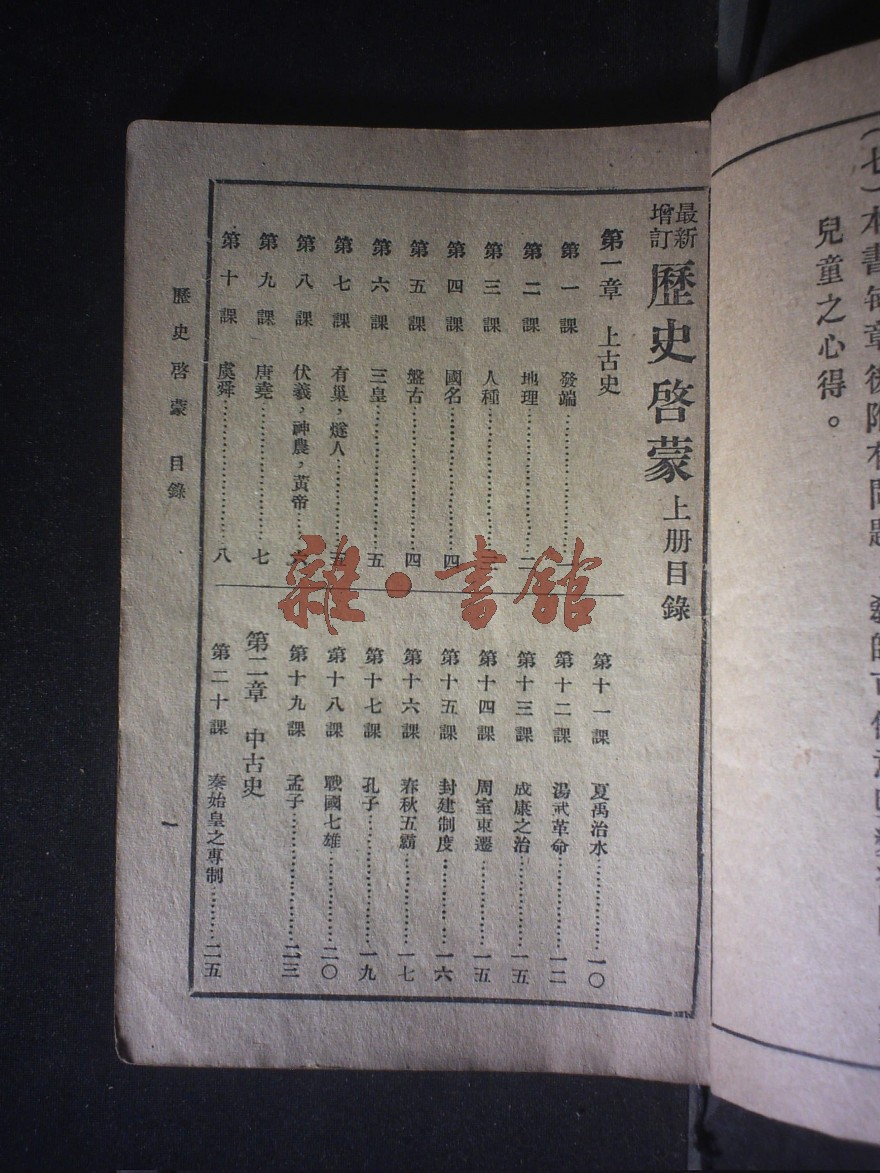 兒童之心得。
最新增訂 歷史啓蒙 上册目錄
第一章 上古史
第一課 發端……一
第二課 地理……二
第三課 人種……三
第四課 國名……四
第五課 盤古……四
第六課 三皇……五
第七課 有巢，燧人……五
第八課 伏羲，神農，黃帝……六
第九課 唐堯……七
第十課 虞舜……八
第十一課 夏禹治水……一〇
第十二課 湯武革命……一二
第十三課 成康之治……一五
第十四課 周室東遷……一五
第十五課 封建制度……一六
第十六課 春秋五霸……一七
第十七課 孔子……一九
第十八課 戰國七雄……二〇
第十九課 孟子……二三
第二章 中古史
第二十課 秦始皇之專制……二五
歷史啓蒙 目錄
一
雜·書館